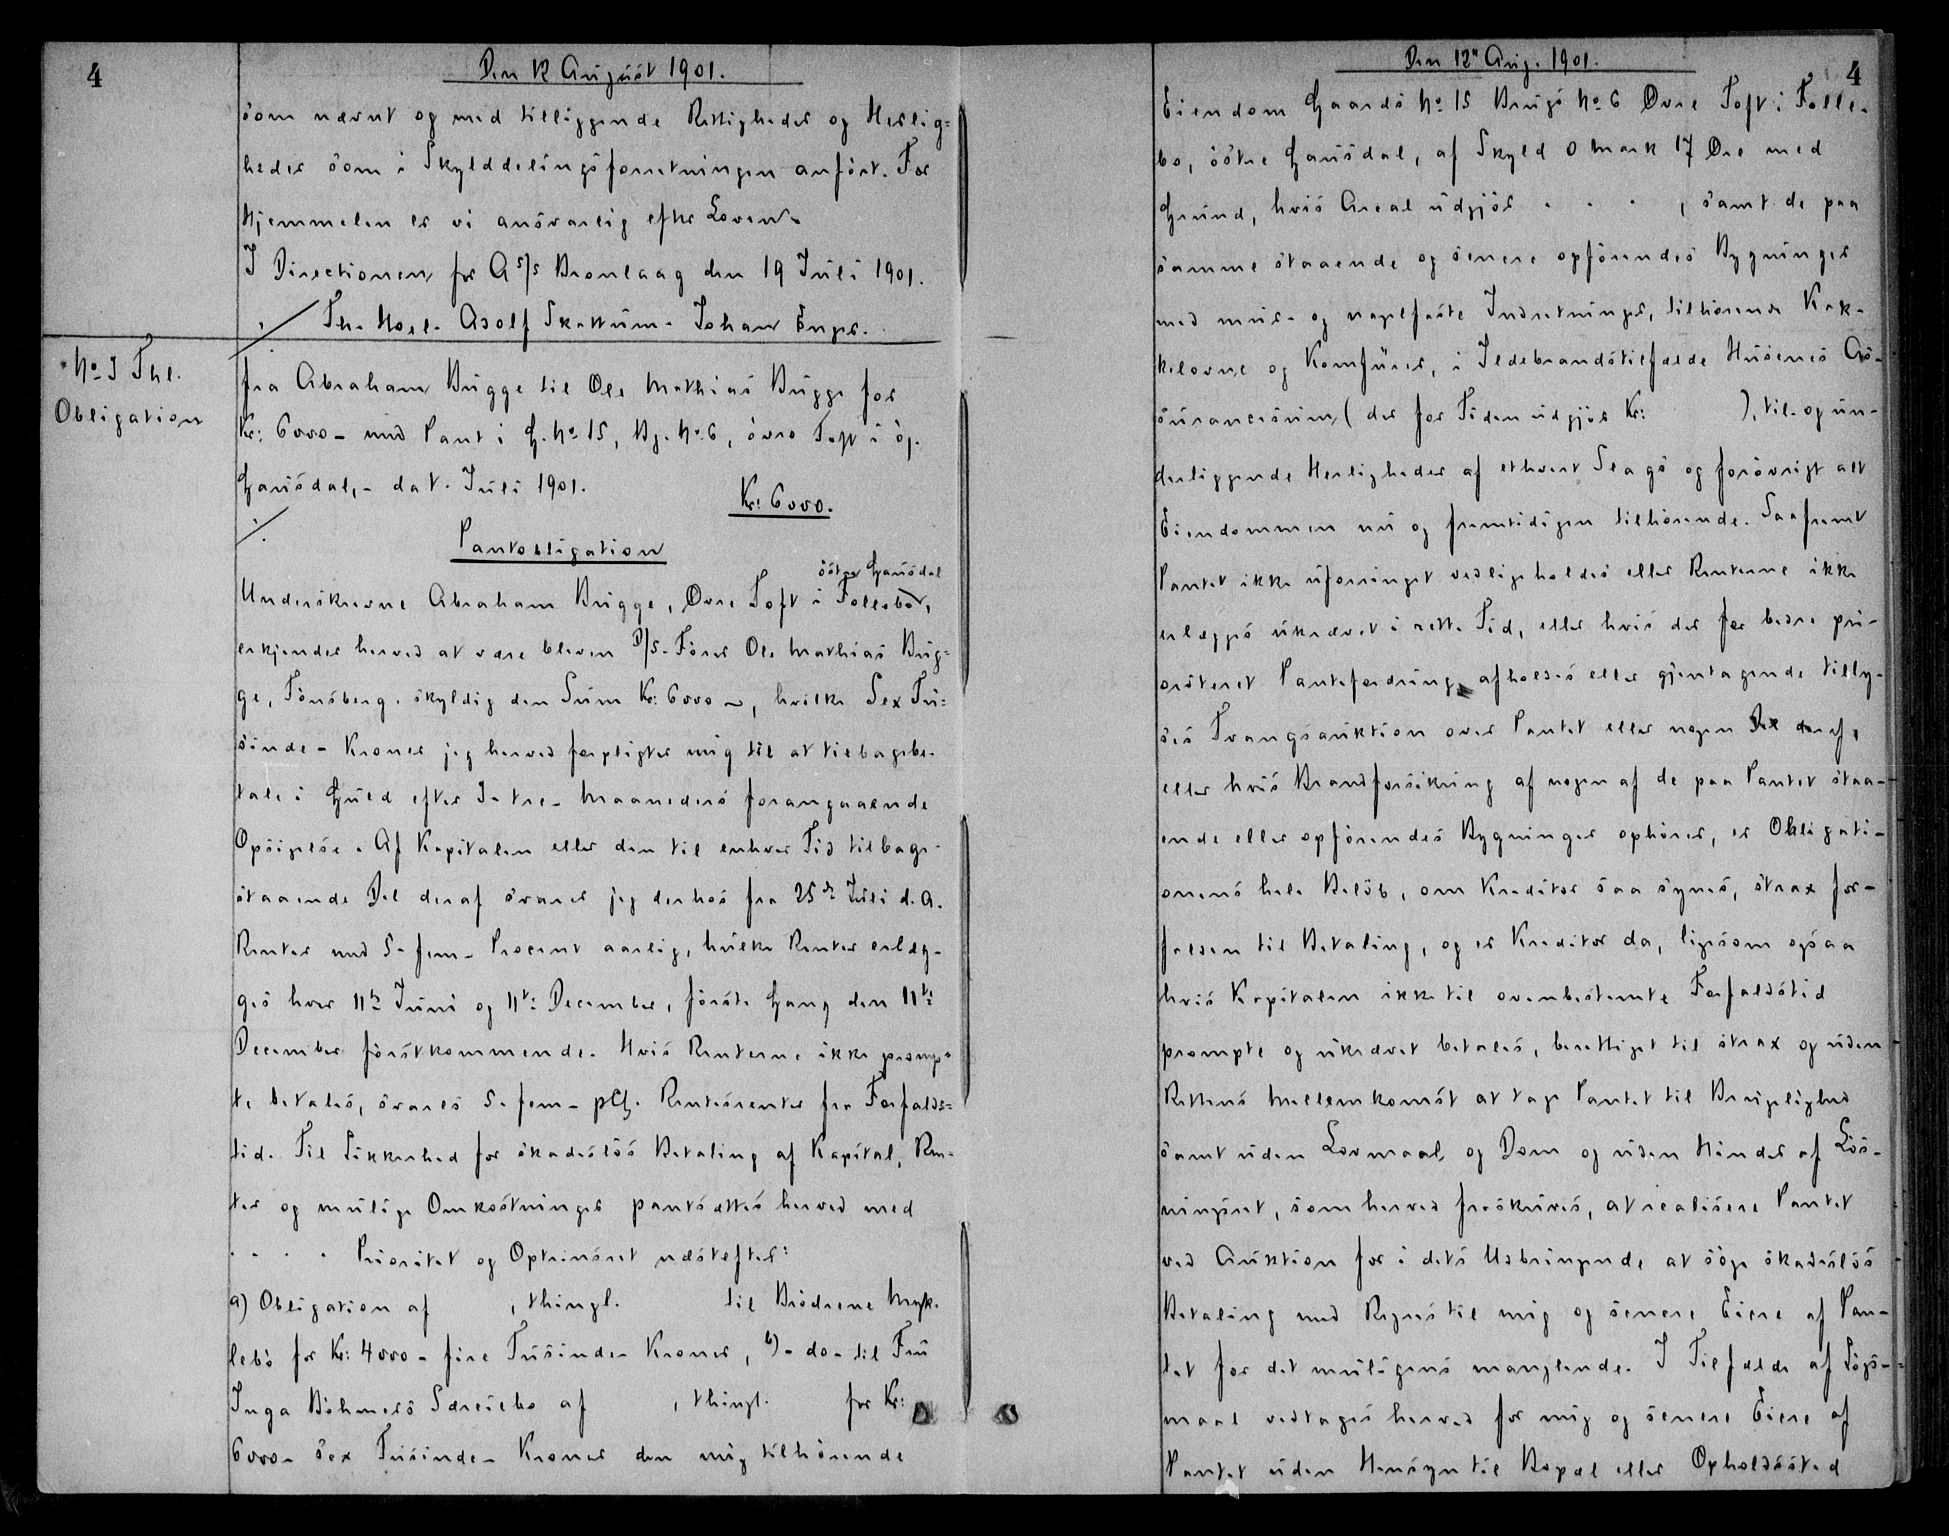 4
Den 12 August 1901.
som nævnt og med tilliggende Rettigheder og Herlig=
heder som i Skylddelingsforretningen anført. For
Hjemmelen er vi ansvarlig efter Loven.
I Directionen for A s/s Bronlaag den 19 Juli 1901.
Th. Horl. Adolf Skattum. Johan Enger.
No 3 Thl.
Obligation
fra Abraham Bugge til Ole Mathias Bugge for
Kr: 6000 - med Pant i G. No 15, Bg. No 6, övre Toft i ö.
Gausdal, - dat. Juli 1901.
Kr: 6000.
Pantobligation
östre Gausdal
Underskrevne Abraham Bugge, Övre Toft i Follebo,
erkjender herved at være bleven D/S. Förer Ole Mathias Bug=
ge, Tönsberg, skyldig den Sum Kr: 6000 -, hvilke Sex Tu=
sinde - Kroner jeg herved forpligter mig til at tilbagebe-
tale i Guld efter 3 - tre - Maaneders forangaaende
Opsigelse. Af Kapitalen eller den til enhver Tid tilbage-
staaende Del deraf svarer jeg derhos fra 25de Juli d. A.
Renter med 5 - fem - Procent aarlig, hvilke Renter erlæg-
ges hver 11te Juni og 11te December, förste Gang den 11te
December förstkommende. Hvis Renterne ikke promp=
te betales, svares 5 - fem - pCt. Rentesrenter fra Forfalds=
tid. Til Sikkerhed for skadeslös Betaling af Kapital, Ren-
ter og mulige Omkostninger pantsættes herved med
. . . . Prioritet og Optrinsret næstefter:
a) Obligation af , thingl. til Brödrene Myk-
lebö for Kr: 4000 - fire Tusinde - Kroner, b) - do - til Fru
Inga Böhmers Særeiebo af , thingl. for Kr:
6000 - sex Tusinde - Kroner den mig tilhörende
Den 12te Aug. 1901.
4
Eiendom Gaards No 15 Brugs No 6 Övre Toft i Folle-
bo, östre Gausdal, af Skyld 0 Mark 17 Öre med
Grund, hvis Areal udgjör . . . , samt de paa
samme staaende og senere opförendes Bygninger
med mur- og nagelfaste Indretninger, tilhörende Kak-
kelovne og Komfurer, i Ildebrandstilfælde Husenes As-
surancesum (der for Tiden udgjör Kr: ), til- og un-
derliggende Herligheder af ethvert Slags og forövrigt alt
Eiendommen nu og fremtidigen tilhörende. Saafremt
Pantet ikke uforringet vedligeholdes eller Renterne ikke
erlægges ukrævet i rette Tid, eller hvis der for bedre pri-
oriteret Pantefordring afholdes eller gjentagende tilly-
ses Tvangsauktion over Pantet eller nogen Del deraf,
eller hvis Brandforsikring af nogen af de paa Pantet staa-
ende eller opförendes Bygninger ophörer, er Obligati-
onens hele Belöb, om Kreditor saa synes, strax for-
falden til Betaling, og er Kreditor da, ligesom ogsaa
hvis Kapitalen ikke til ovenbestemte Forfaldstid
prompte og ukrævet betales, berettiget til strax og uden
Rettens Mellemkomst at tage Pantet til Brugelighed
samt uden Lovmaal og Dom og uden Hinder af Lös-
ningsret, som herved fraskrives, at realisere Pantet
ved Auktion for i dets Udbringende at söge skadeslös
Betaling med Regres til mig og senere Eiere af Pan-
tet for det muligens manglende. I Tilfælde af Sögs-
maal vedtages herved for mig og senere Eiere af
Pantet uden Hensyn til Bopæl eller Opholdssted